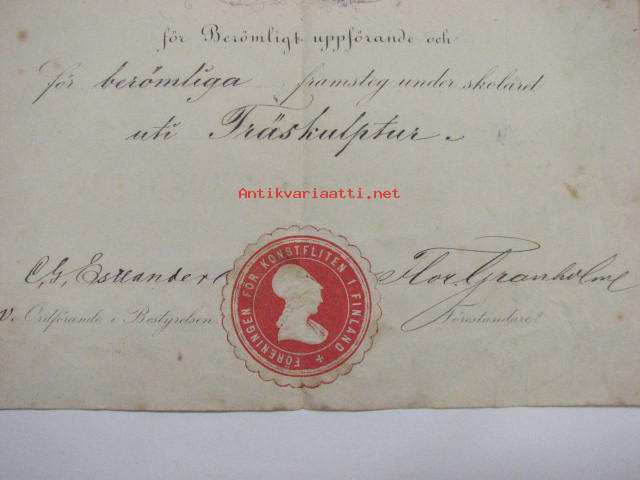 för Berömligt uppförande och
för berömliga framsteg under skolåret
uti Träskulptur.
Antikvariaatti.net
C. G. Estlander
Flor. Granholm
v. Ordförande i Bestyrelsen
Föreståndare
FÖRENINGEN FÖR KONSTFLITEN I FINLAND